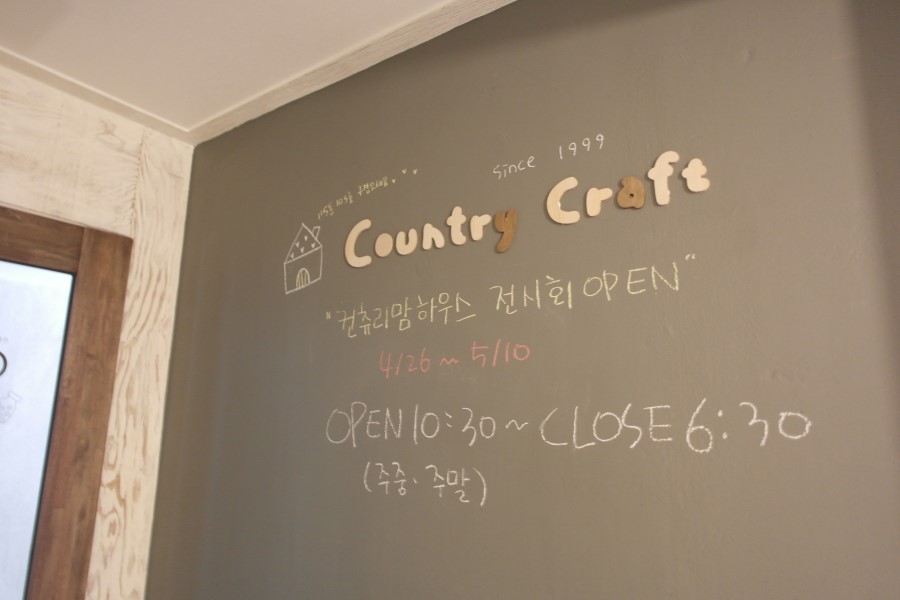 since 1999
Country Craft
"컨츄리맘하우스 전시회 OPEN"
4/26 ~ 5/10
OPEN 10:30 ~ CLOSE 6:30
(주중·주말)